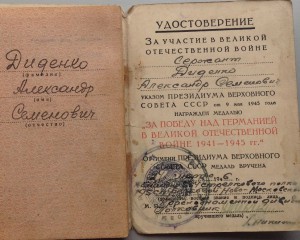 Диденко
(фамилия)
Александр
(имя)
Семенович
(отчество)
УДОСТОВЕРЕНИЕ
ЗА УЧАСТИЕ В ВЕЛИКОЙ
ОТЕЧЕСТВЕННОЙ ВОЙНЕ
Сержант
Диденко
Александр Семенович
УКАЗОМ ПРЕЗИДИУМА ВЕРХОВНОГО
СОВЕТА СССР от 9 мая 1945 года
НАГРАЖДЕН МЕДАЛЬЮ
"ЗА ПОБЕДУ НАД ГЕРМАНИЕЙ
В ВЕЛИКОЙ ОТЕЧЕСТВЕННОЙ
ВОЙНЕ 1941—1945 гг."
ОТ ИМЕНИ ПРЕЗИДИУМА ВЕРХОВНОГО
СОВЕТА СССР МЕДАЛЬ ВРУЧЕНА
полка
М. П.